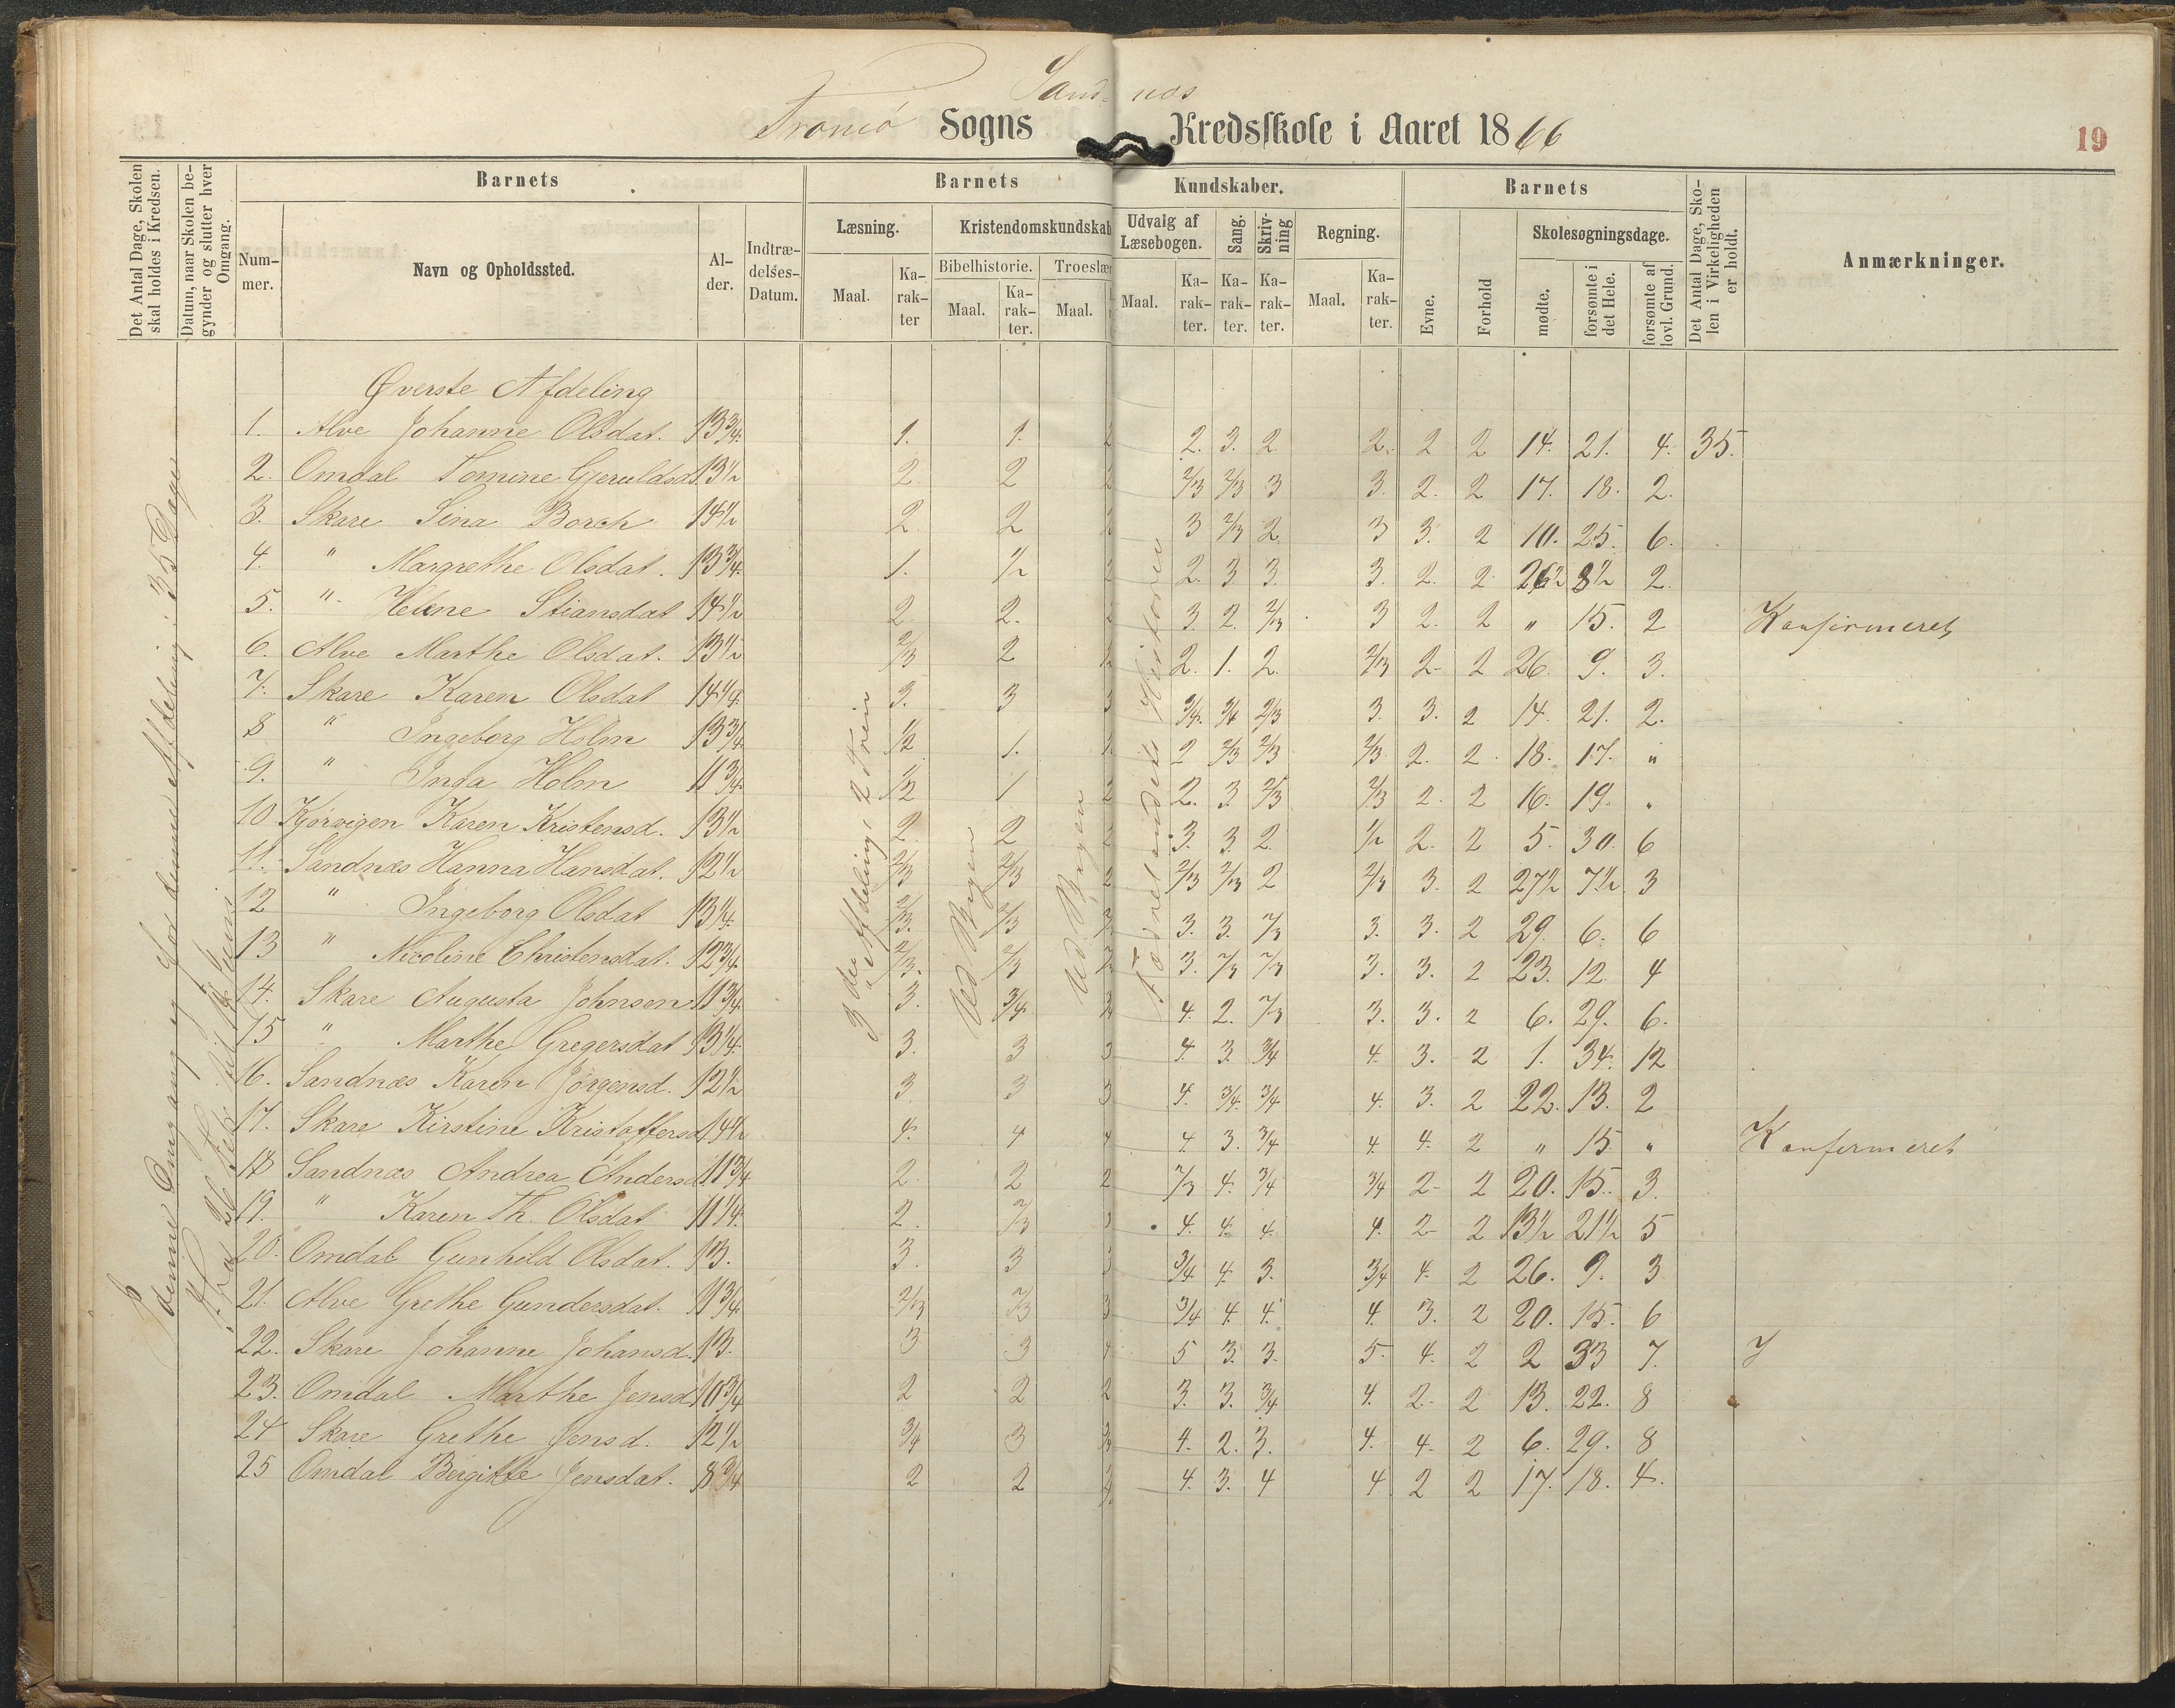 Sandnæs
Tromø Sogns Kredsskole i Aaret 1866
19
Det Antal Dage, Skolen skal holdes i Kredsen.
Datum, naar Skolen begynder og slutter hver Omgang.
Barnets
Nummer.
Navn og Opholdssted.
Alder.
Indtrædelses-Datum.
Barnets Kundskaber.
Læsning.
Maal.
Karakter
Kristendomskundskab
Bibelhistorie.
Maal.
Karakter.
Troeslær
Maal.
Udvalg af Læsebogen.
Maal.
Karakter.
Sang.
Karakter.
Skrivning
Karakter.
Regning.
Maal.
Karakter.
Barnets
Evne.
Forhold
Skolesøgningsdage.
mødte.
forsømte i det Hele.
forsømte af lovl. Grund.
Det Antal Dage, Skolen i Virkeligheden er holdt.
Anmærkninger.
denne Omgang og for denne Afdeling: 35 Dage
Fra 26 Feb. til 14 Juni
3die Afdeling, 2 Trin
Ud Bogen
Ud Bogen
Fædrelandets Historie
Øverste Afdeling
1. Alve Johanne Olsdat. 13 3/4 1. 1. 2 2. 3. 2 2. 2 2 14. 21. 4. 35.
2. Omdal Tomine Gjeruldsd. 13 1/2 2. 2 2 2/3 2/3 3 3. 2. 2 17. 18. 2.
3. Skare Sina Borch 14 1/2 2. 2 2 3 2/3 2 3 3. 2 10. 25. 6.
4. " Margrethe Olsdat. 13 3/4 1. 1/2 2 2. 3 3. 3. 2. 2 26 1/2 8 1/2 2.
5. " Helene Stiansdat 14 1/2 2. 2. 3. 2. 2/3 3 2. 2 " 15. 2 Konfirmeret
6. Alve Marthe Olsdat. 13 1/2 2/3 2 2. 1. 2. 2/3 2 2 26. 9. 3.
7. Skare Karen Olsdat 14 1/4 3. 3 3 3/4 3/4 2/3 3. 3. 2 14. 21. 2.
8 " Ingeborg Holm 13 3/4 1/2 1. 1. 2 2/3 2/3 2/3 2. 2 18. 17. "
9. " Inga Holm 11 3/4 1/2 1 2 2. 3 2/3 2/3 2. 2 16. 19. "
10 Kjørvigen Karen Kristensd. 13 1/2 2. 2 2 3. 3 2. 1/2 2. 2 5. 30. 6
11. Sandnæs Hanna Hansdat. 12 1/2 2/3 2/3 2 2/3 2/3 2 2/3 3. 2 27 1/2 7 1/2 3
12 " Ingeborg Olsdat 13 1/4 2/3 2/3 3. 3. 2/3 3. 3. 2 29. 6. 6
13 " Nicoline Christensdat. 12 3/4 2/3 2/3 3. 2/3 2/3 3. 3. 2 23. 12. 4
14. Skare Augusta Johnsen 11 3/4 3. 3/4 4. 2. 2/3 3. 3. 2 6. 29. 6.
15 " Marthe Gregersdat 13 1/4 3. 3 3 4. 3. 3/4 4. 3. 2 1. 34. 12
16. Sandnæs Karen Jørgensd. 12 1/2 3. 3 3 4. 3/4 3/4 4. 3. 2 22. 13. 2
17. Skare Kirstine Kristoffersd. 14 1/2 4. 4 4 4. 3. 3/4 4. 4. 2 " 15. " Konfirmeret
18 Sandnæs Andrea Andersd. 11 3/4 2. 2 2 2/3 4. 3/4 3/4 2 2 20. 15. 3.
19. " Karen Th. Olsdat 11 1/4 2. 2/3 3 4. 4. 4. 4. 2 2 13 1/2 21 1/2 5
20. Omdal Gunhild Olsdat. 13. 3. 3 3/4 4. 3. 3/4 4. 2 26. 9. 3
21. Alve Grethe Gundersdat. 11 3/4 2/3 2/3 3 3/4 4. 4. 4. 3. 2 20. 15. 6
22. Skare Johanne Johansd. 13. 3 3 4 5 3. 3. 5. 4. 2 2 33 7.
23. Omdal Marthe Jensd. 10 3/4 2 2 2 3. 3. 3/4 4. 2. 2 13. 22. 8
24 Skare Grethe Jensd. 12 1/2 3/4 3 4. 2. 3. 4. 4. 2 6. 29. 8
25 Omdal Bergitte Jensdat. 8 3/4 2 2 4. 3. 4 4 2 2 17. 18. 4.